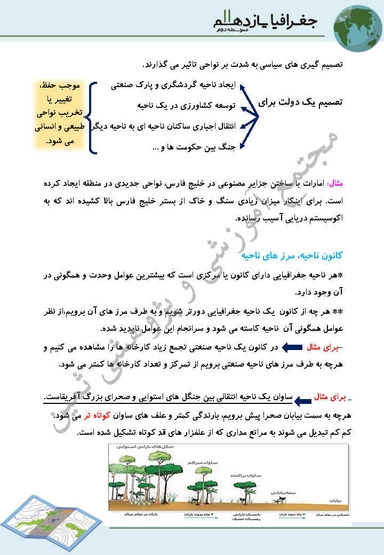 جغرافیا یازدهم
متوسطه دوم
تصمیم گیری های سیاسی به شدت بر نواحی تاثیر می گذارند.
تصمیم یک دولت برای
ایجاد ناحیه گردشگری و پارک صنعتی
توسعه کشاورزی در یک ناحیه
انتقال اجباری ساکنان ناحیه ای به ناحیه دیگر
جنگ بین حکومت ها و ...
موجب حفظ،
تغییر یا
تخریب نواحی
طبیعی و انسانی
می شود.
مثال: امارات با ساختن جزایر مصنوعی در خلیج فارس، نواحی جدیدی در منطقه ایجاد کرده
است. برای اینکار میزان زیادی سنگ و خاک از بستر خلیج فارس بالا کشیده اند که به
اکوسیستم دریایی آسیب رسانده.
کانون ناحیه، مرز های ناحیه
*هر ناحیه جغرافیایی دارای کانون یا مرکزی است که بیشترین عوامل وحدت و همگونی در
آن وجود دارد.
** هر چه از کانون یک ناحیه جغرافیایی دورتر شویم و به طرف مرز های آن برویم،از نظر
عوامل همگونی آن ناحیه کاسته می شود و سرانجام این عوامل ناپدید شده.
–برای مثال در کانون یک ناحیه صنعتی تجمع زیاد کارخانه ها را مشاهده می کنیم و
هرچه به طرف مرز های ناحیه صنعتی برویم از تمرکز و تعداد کارخانه ها کمتر می شود.
_ برای مثال ساوان یک ناحیه انتقالی بین جنگل های استوایی و صحرای بزرگ آفریقاست.
هرچه به سمت بیابان صحرا پیش برویم، بارندگی کمتر و علف های ساوان کوتاه تر می شود.
کم کم تبدیل می شوند به مراتع مداری که از علفزار های قد کوتاه تشکیل شده است.
جنگل‌های بارانی استوایی
ساوان متراکم
ساوان پراکنده
نیمه‌بیابانی
بیابان
مجتمع آموزشی و پژوهشی